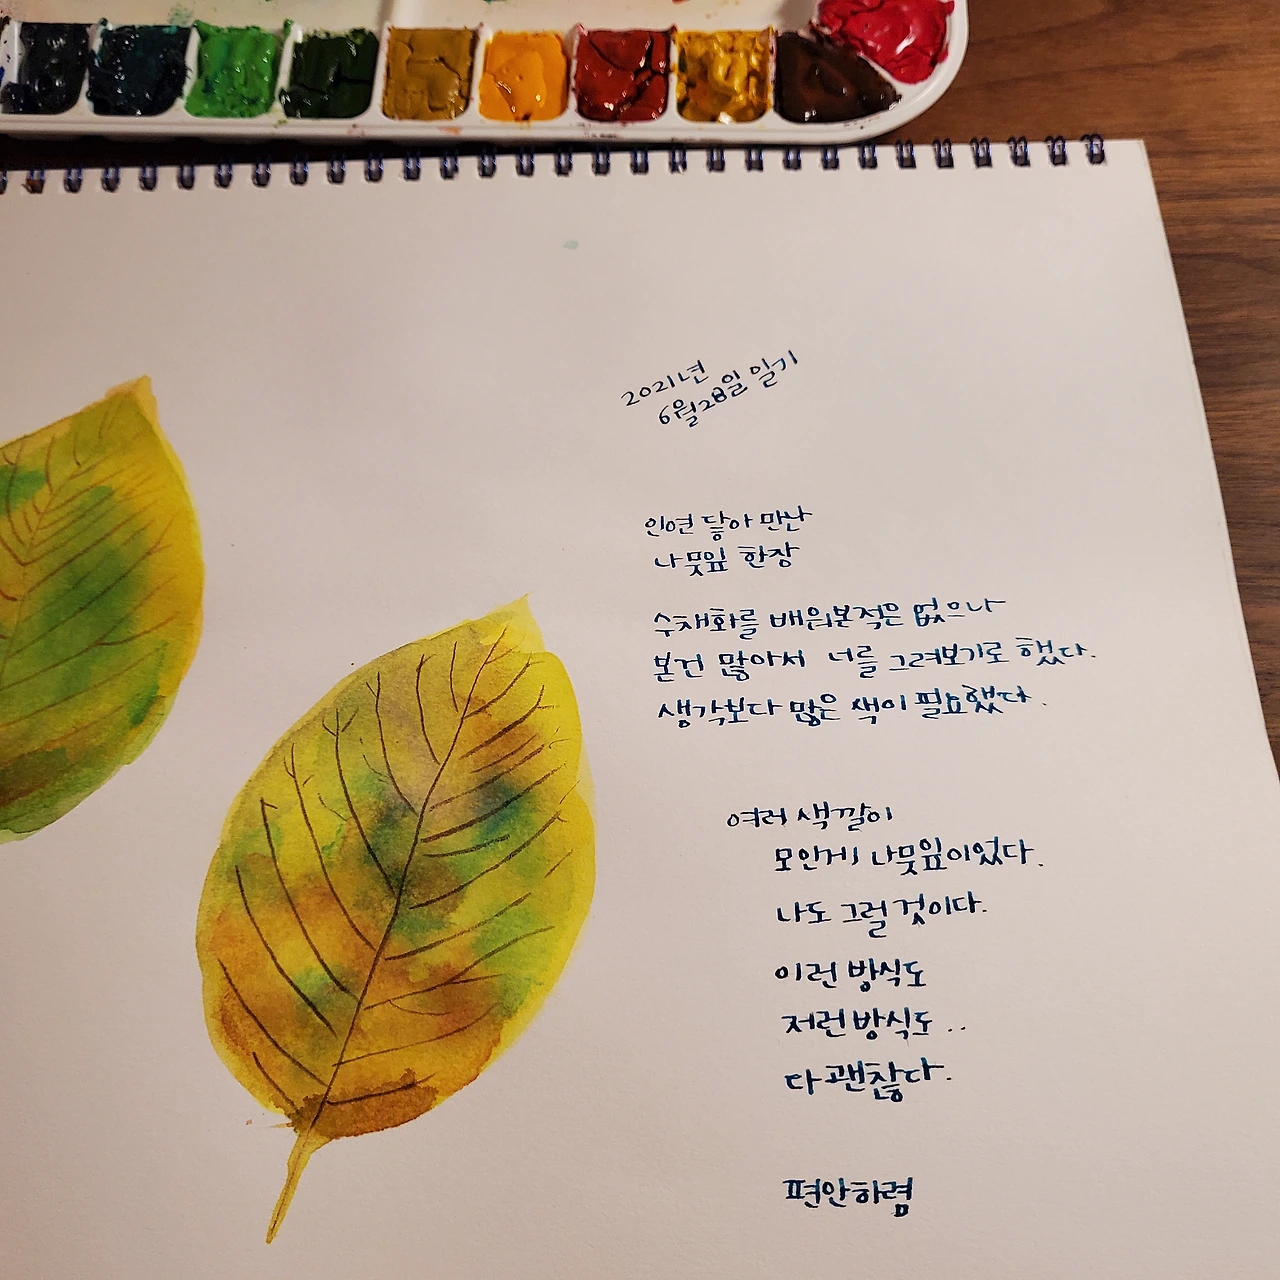 2021년
6월28일 일기
인연 닿아 만난
나뭇잎 한장
수채화를 배워본적은 없으나
본건 많아서 너를 그려보기로 했다.
생각보다 많은 색이 필요했다.
여러 색깔이
모인게 나뭇잎이었다.
나도 그럴것이다.
이런 방식도
저런 방식도..
다 괜찮다.
편안하렴